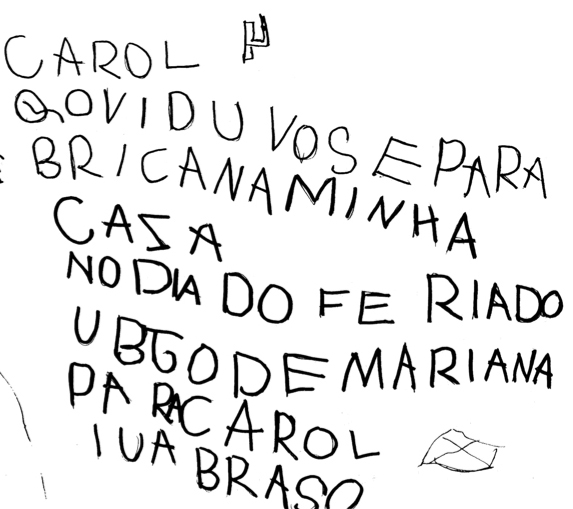 CAROL
QOVIDU VOSE PARA
BRICANAMINHA
CASA
NO DIA DO FE RIADO
U BGO DE MARIANA
PARA CAROL
IUA BRASO